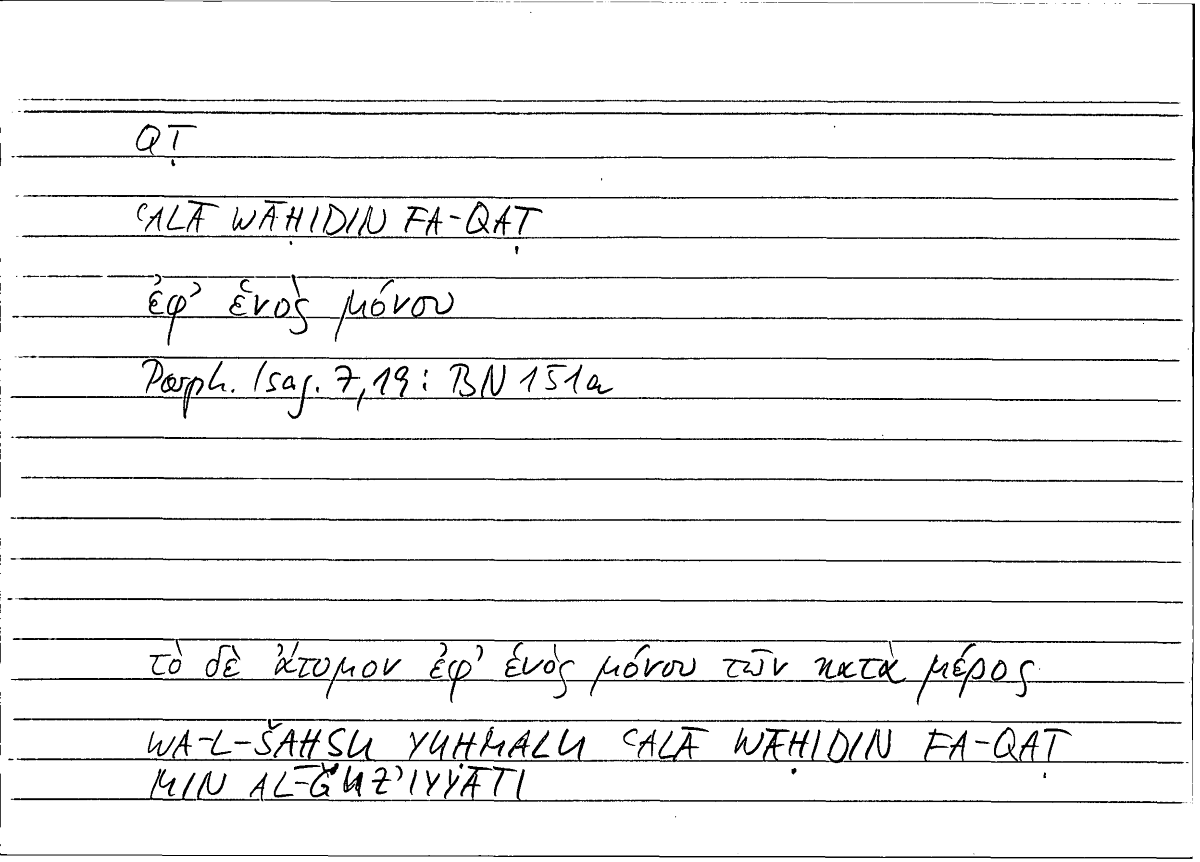 QṬ
ʿALĀ WĀḤIDIN FA-QAṬ
ἐφ’ ἑνὸς μόνου
Porph. Isag. 7,19: BN 151a
τὸ δὲ ἄτομον ἐφ’ ἑνὸς μόνου τῶν κατὰ μέρος
WA-L-ŠAHSU YUḤMALU ʿALĀ WĀḤIDIN FA-QAṬ
MIN AL-ǦUZ’IYYĀTI